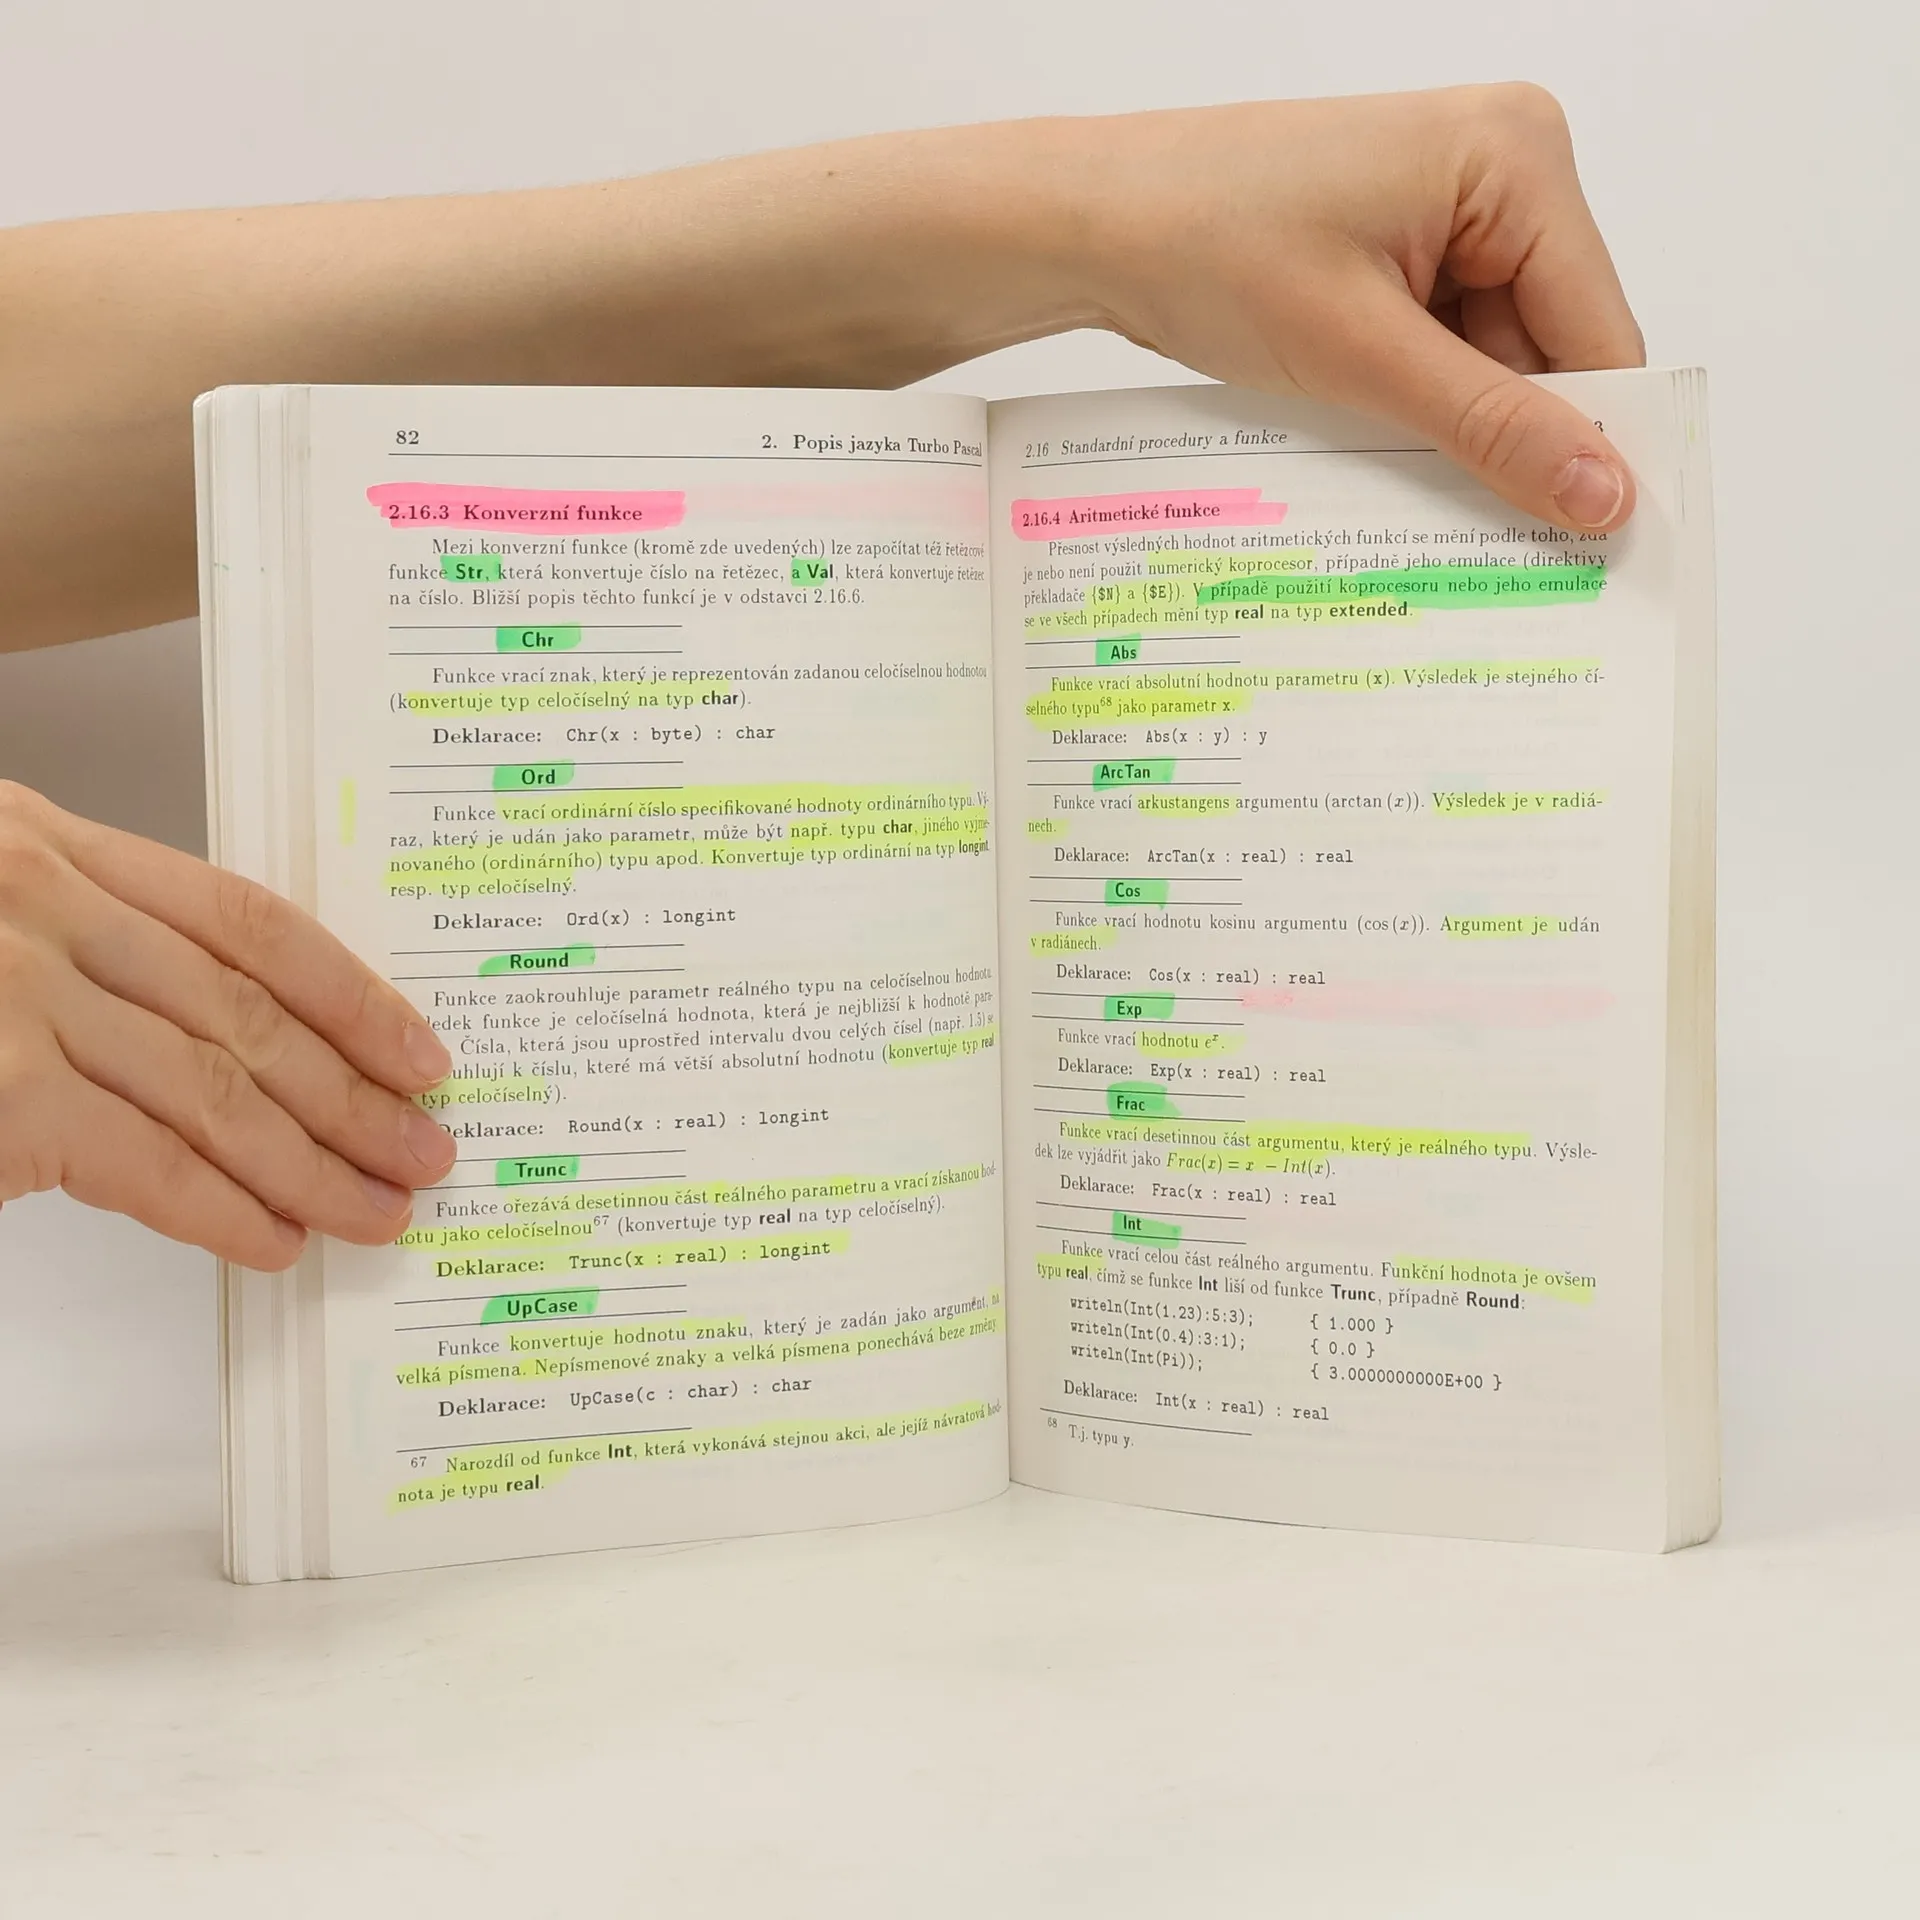 82
2. Popis jazyka Turbo Pascal
2.16.3 Konverzní funkce
Mezi konverzní funkce (kromě zde uvedených) lze započítat též řetězcové
funkce Str, která konvertuje číslo na řetězec, a Val, která konvertuje řetězec
na číslo. Bližší popis těchto funkcí je v odstavci 2.16.6.
Chr
Funkce vrací znak, který je reprezentován zadanou celočíselnou hodnotou
(konvertuje typ celočíselný na typ char).
Deklarace: Chr(x : byte) : char
Ord
Funkce vrací ordinární číslo specifikované hodnoty ordinárního typu. Vý-
raz, který je udán jako parametr, může být např. typu char, jiného vyjme-
novaného (ordinárního) typu apod. Konvertuje typ ordinární na typ longint
resp. typ celočíselný.
Deklarace: Ord(x) : longint
Round
Funkce zaokrouhluje parametr reálného typu na celočíselnou hodnotu.
ledek funkce je celočíselná hodnota, která je nejbližší k hodnotě para-
Čísla, která jsou uprostřed intervalu dvou celých čísel (např. 1.5) se
uhlují k číslu, které má větší absolutní hodnotu (konvertuje typ real
typ celočíselný).
Deklarace: Round(x : real) : longint
Trunc
Funkce ořezává desetinnou část reálného parametru a vrací získanou hod-
notu jako celočíselnou67 (konvertuje typ real na typ celočíselný).
Deklarace: Trunc(x : real) : longint
UpCase
Funkce konvertuje hodnotu znaku, který je zadán jako argument, na
velká písmena. Nepísmenové znaky a velká písmena ponechává beze změny.
Deklarace: UpCase(c : char) : char
67 Narozdíl od funkce Int, která vykonává stejnou akci, ale jejíž návratová hod-
nota je typu real.
2.16 Standardní procedury a funkce
3
2.16.4 Aritmetické funkce
Přesnost výsledných hodnot aritmetických funkcí se mění podle toho, zda
je nebo není použit numerický koprocesor, případně jeho emulace (direktivy
překladače {$N} a {$E}). V případě použití koprocesoru nebo jeho emulace
se ve všech případech mění typ real na typ extended.
Abs
Funkce vrací absolutní hodnotu parametru (x). Výsledek je stejného čí-
selného typu68 jako parametr x.
Deklarace: Abs(x : y) : y
ArcTan
Funkce vrací arkustangens argumentu (arctan (x)). Výsledek je v radiá-
nech.
Deklarace: ArcTan(x : real) : real
Cos
Funkce vrací hodnotu kosinu argumentu (cos (x)). Argument je udán
v radiánech.
Deklarace: Cos(x : real) : real
Exp
Funkce vrací hodnotu e^x.
Deklarace: Exp(x : real) : real
Frac
Funkce vrací desetinnou část argumentu, který je reálného typu. Výsle-
dek lze vyjádřit jako Frac(x) = x − Int(x).
Deklarace: Frac(x : real) : real
Int
Funkce vrací celou část reálného argumentu. Funkční hodnota je ovšem
typu real, čímž se funkce Int liší od funkce Trunc, případně Round:
writeln(Int(1.23):5:3); { 1.000 }
writeln(Int(0.4):3:1); { 0.0 }
writeln(Int(Pi)); { 3.0000000000E+00 }
Deklarace: Int(x : real) : real
68 T.j. typu y.